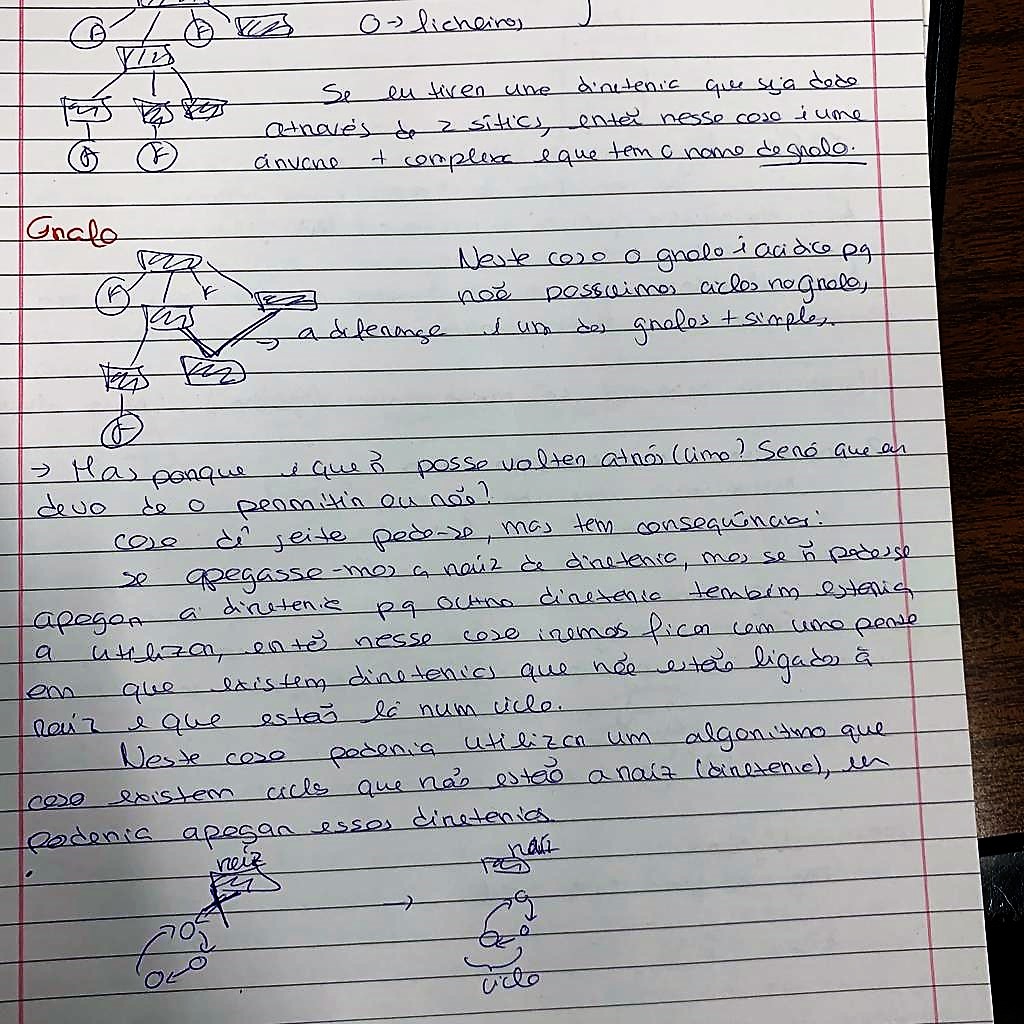 F F O → ficheiros
Se eu tiver uma diretoria que seja dada
através de 2 sítios, então nesse caso é uma
F F árvore + complexa e que tem o nome de grafo.
Grafo
Neste caso o grafo é acíclico pq
F F não possuimos ciclos no grafo,
→ a diferença é um dos grafos + simples.
F
→ Mas porque é que ñ posso voltar atrás (cima)? Será que eu
devo de o permitir ou não?
caso dê jeito pode-se, mas tem consequências:
se apagasse-mos a raíz de diretoria, mas se ñ podesse
apagar a diretoria pq outra diretoria também estaria
a utilizar, então nesse caso iremos ficar com uma parte
em que existem diretorias que não estão ligados à
raíz e que estão lá num ciclo.
Neste caso poderia utilizar um algoritmo que
caso existem ciclo que não estão a raíz (diretoria), eu
poderia apagar essas diretorias.
raíz raíz
→
ciclo